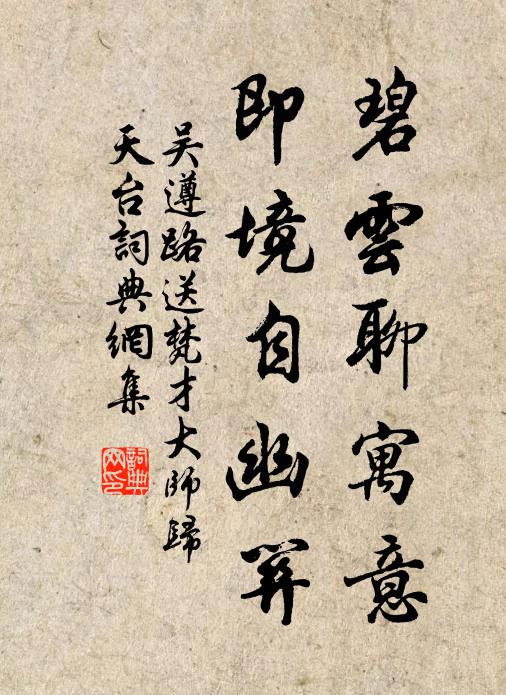 碧雲聊寓意
即境自幽
吴遵路送梵才大師歸
天台詞典網集
詞典
网印